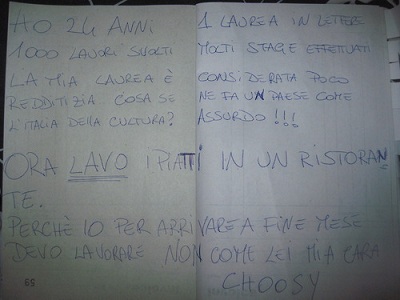 HO 24 ANNI 1 LAUREA IN LETTERE
1000 LAVORI SVOLTI MOLTI STAGE EFFETTUATI
LA MIA LAUREA È CONSIDERATA POCO
REDDITIZIA. COSA SE NE FA UN PAESE COME
L'ITALIA DELLA CULTURA? ASSURDO!!!
ORA LAVO I PIATTI IN UN RISTORAN
TE.
PERCHÈ IO PER ARRIVARE A FINE MESE
DEVO LAVORARE NON COME LEI MIA CARA
CHOOSY
68